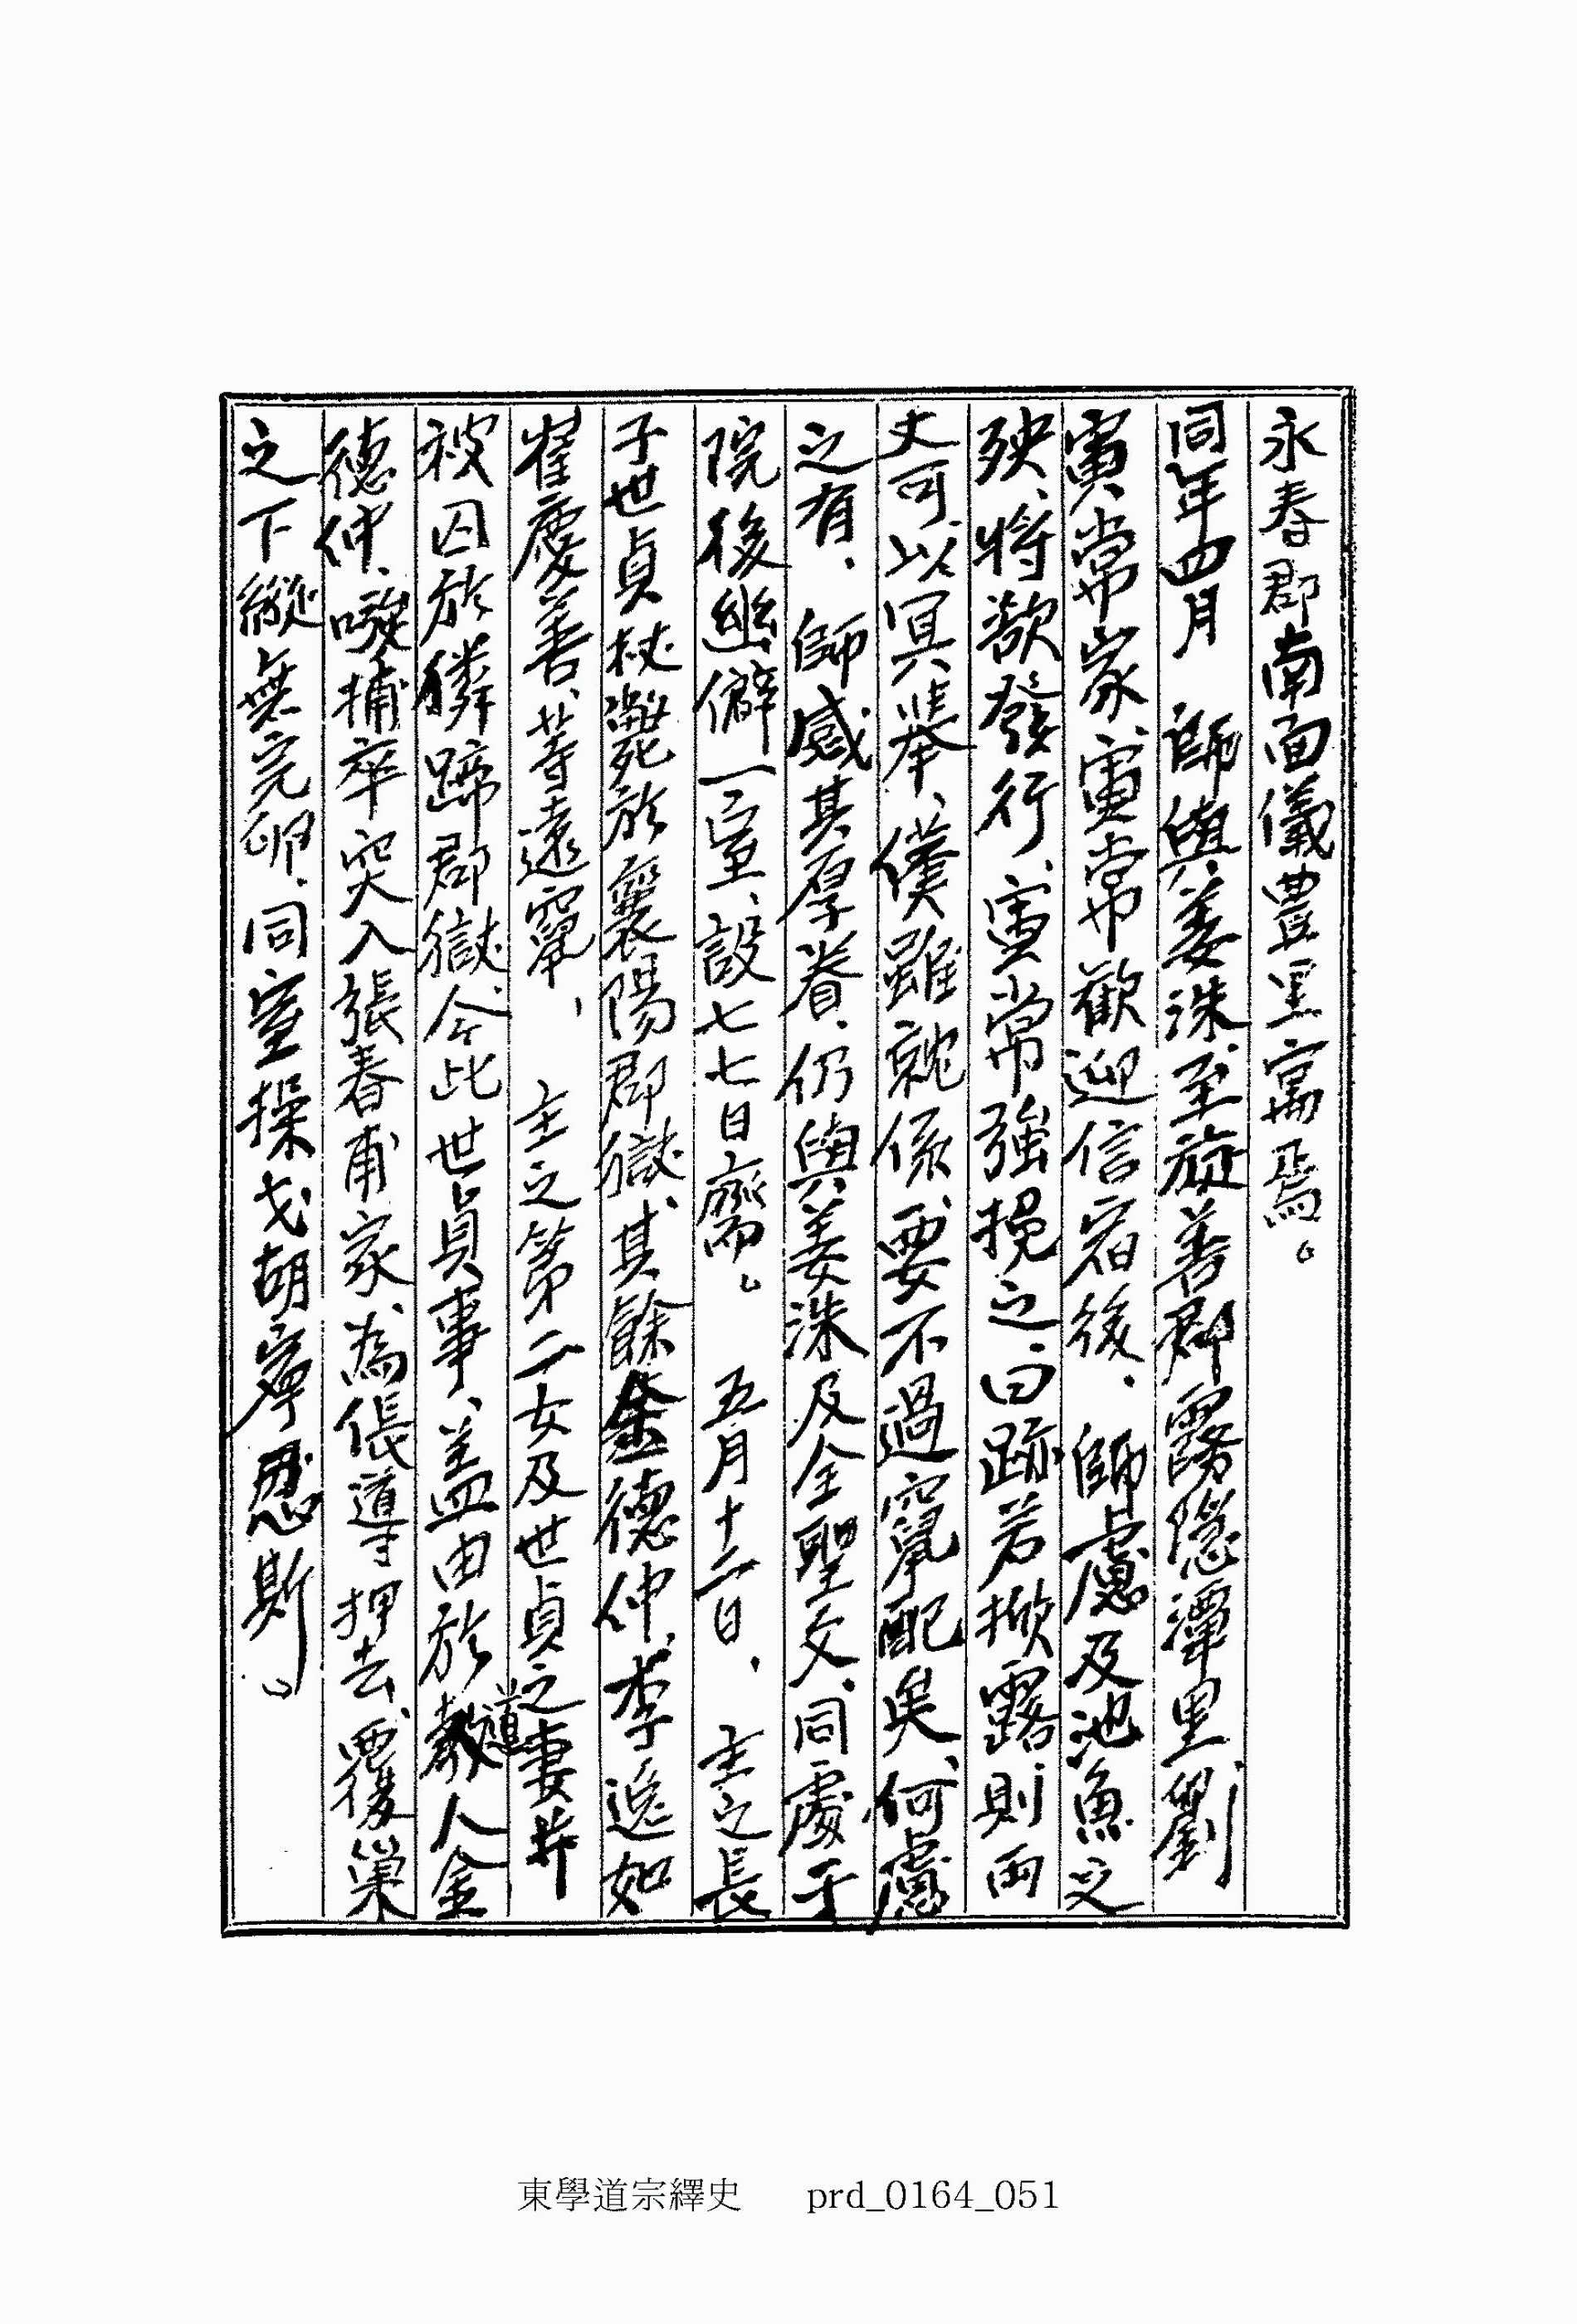 永春郡南面儀豊里寓焉。
同年四月 師與姜洙、至旌善郡霧隱潭里、劉
寅常家、寅常歡迎信宿後、師慮及池魚之
殃、將欲發行、寅常強挽之、曰跡若掀露、則兩
丈可以冥擧、僕雖就係、要不過竄配矣、何慮
之有、 師感其厚眷、仍與姜洙及全聖文、同處于
院後幽僻一室、設七七日齋。 五月十二日、 主之長
子世貞杖斃於襄陽郡獄、其餘金德仲、李逸如
崔慶善、等遠竄、 主之第二女及世貞之妻幷
被囚於獜蹄郡獄、今此世貞事、盖由於敎道人金
德仲、嗾捕卒突入張春甫家、為倀導押去、覆巢
之下縱無完卵、同室操戈胡寧忍斯。
東學道宗繹史 prd_0164_051